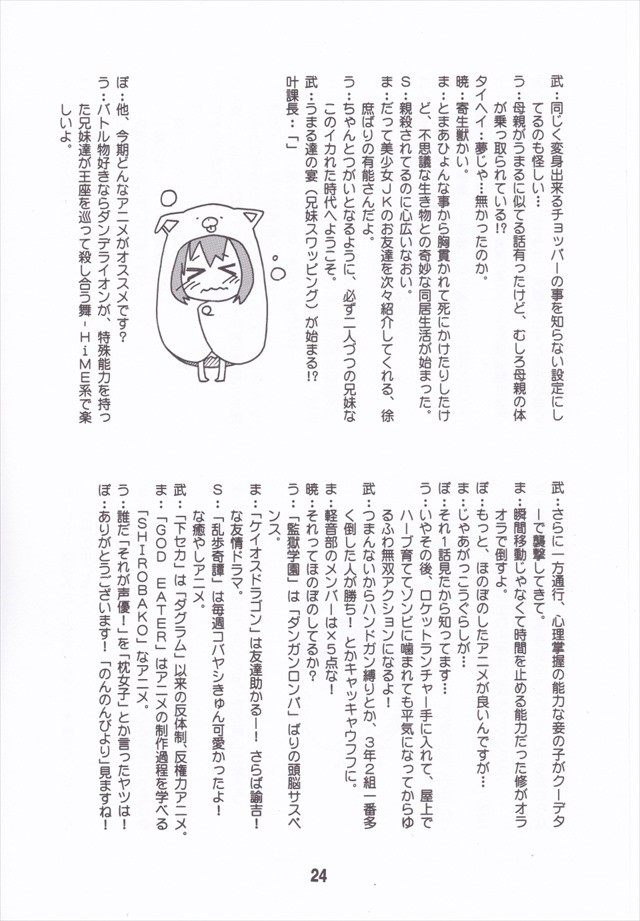 武：同じく変身出来るチョッパーの事を知らない設定にし
てるのも怪しい…
う：母親がうまるに似てる話有ったけど、むしろ母親の体
が乗っ取られている!?
タイヘイ：夢じゃ…無かったのか。
暁：寄生獣かい。
ま：とまあひょんな事から胸貫かれて死にかけたりしたけ
ど、不思議な生き物との奇妙な同居生活が始まった。
Ｓ：親殺されてるのに心広いなおい。
ま：だって美少女ＪＫのお友達を次々紹介してくれる、徐
庶ばりの有能さんだよ。
う：ちゃんとつがいとなるように、必ず二人づつの兄妹な
このイカれた時代へようこそ。
武：うまる達の宴（兄妹スワッピング）が始まる!?
叶課長：「」
ぽ：他、今期どんなアニメがオススメです？
う：バトル物好きならダンデライオンが、特殊能力を持っ
た兄妹達が王座を巡って殺し合う舞-HiME系で楽
しいよ。
武：さらに一方通行、心理掌握の能力な妾の子がクーデタ
ーで襲撃してきて。
ま：瞬間移動じゃなくて時間を止める能力だった修がオラ
オラで倒すよ。
ぽ：もっと、ほのぼのしたアニメが良いんですが…
ま：じゃあがっこうぐらしが…
ぽ：それ1話見たから知ってます…
う：いやその後、ロケットランチャー手に入れて、屋上で
ハーブ育ててゾンビに噛まれても平気になってからゆ
るふわ無双アクションになるよ！
武：つまんないからハンドガン縛りとか、３年２組一番多
く倒した人が勝ち！とかキャッキャウフフに。
ま：軽音部のメンバーは×５点な！
暁：それってほのぼのしてるか？
う：「監獄学園」は「ダンガンロンパ」ばりの頭脳サスペ
ンス。
ま：「ケイオスドラゴン」は友達助かるー！さらば諭吉！
な友情ドラマ。
Ｓ：「乱歩奇譚」は毎週コバヤシきゅん可愛かったよ！
な癒やしアニメ。
武：「下セカ」は「ダグラム」以来の反体制、反権力アニメ。
ま：「GOD EATER」はアニメの制作過程を学べる
「SHIROBAKO」なアニメ。
う：誰だ「それが声優！」を「枕女子」とか言ったヤツは！
ぽ：ありがとうございます！「のんのんびより」見ますね！
24